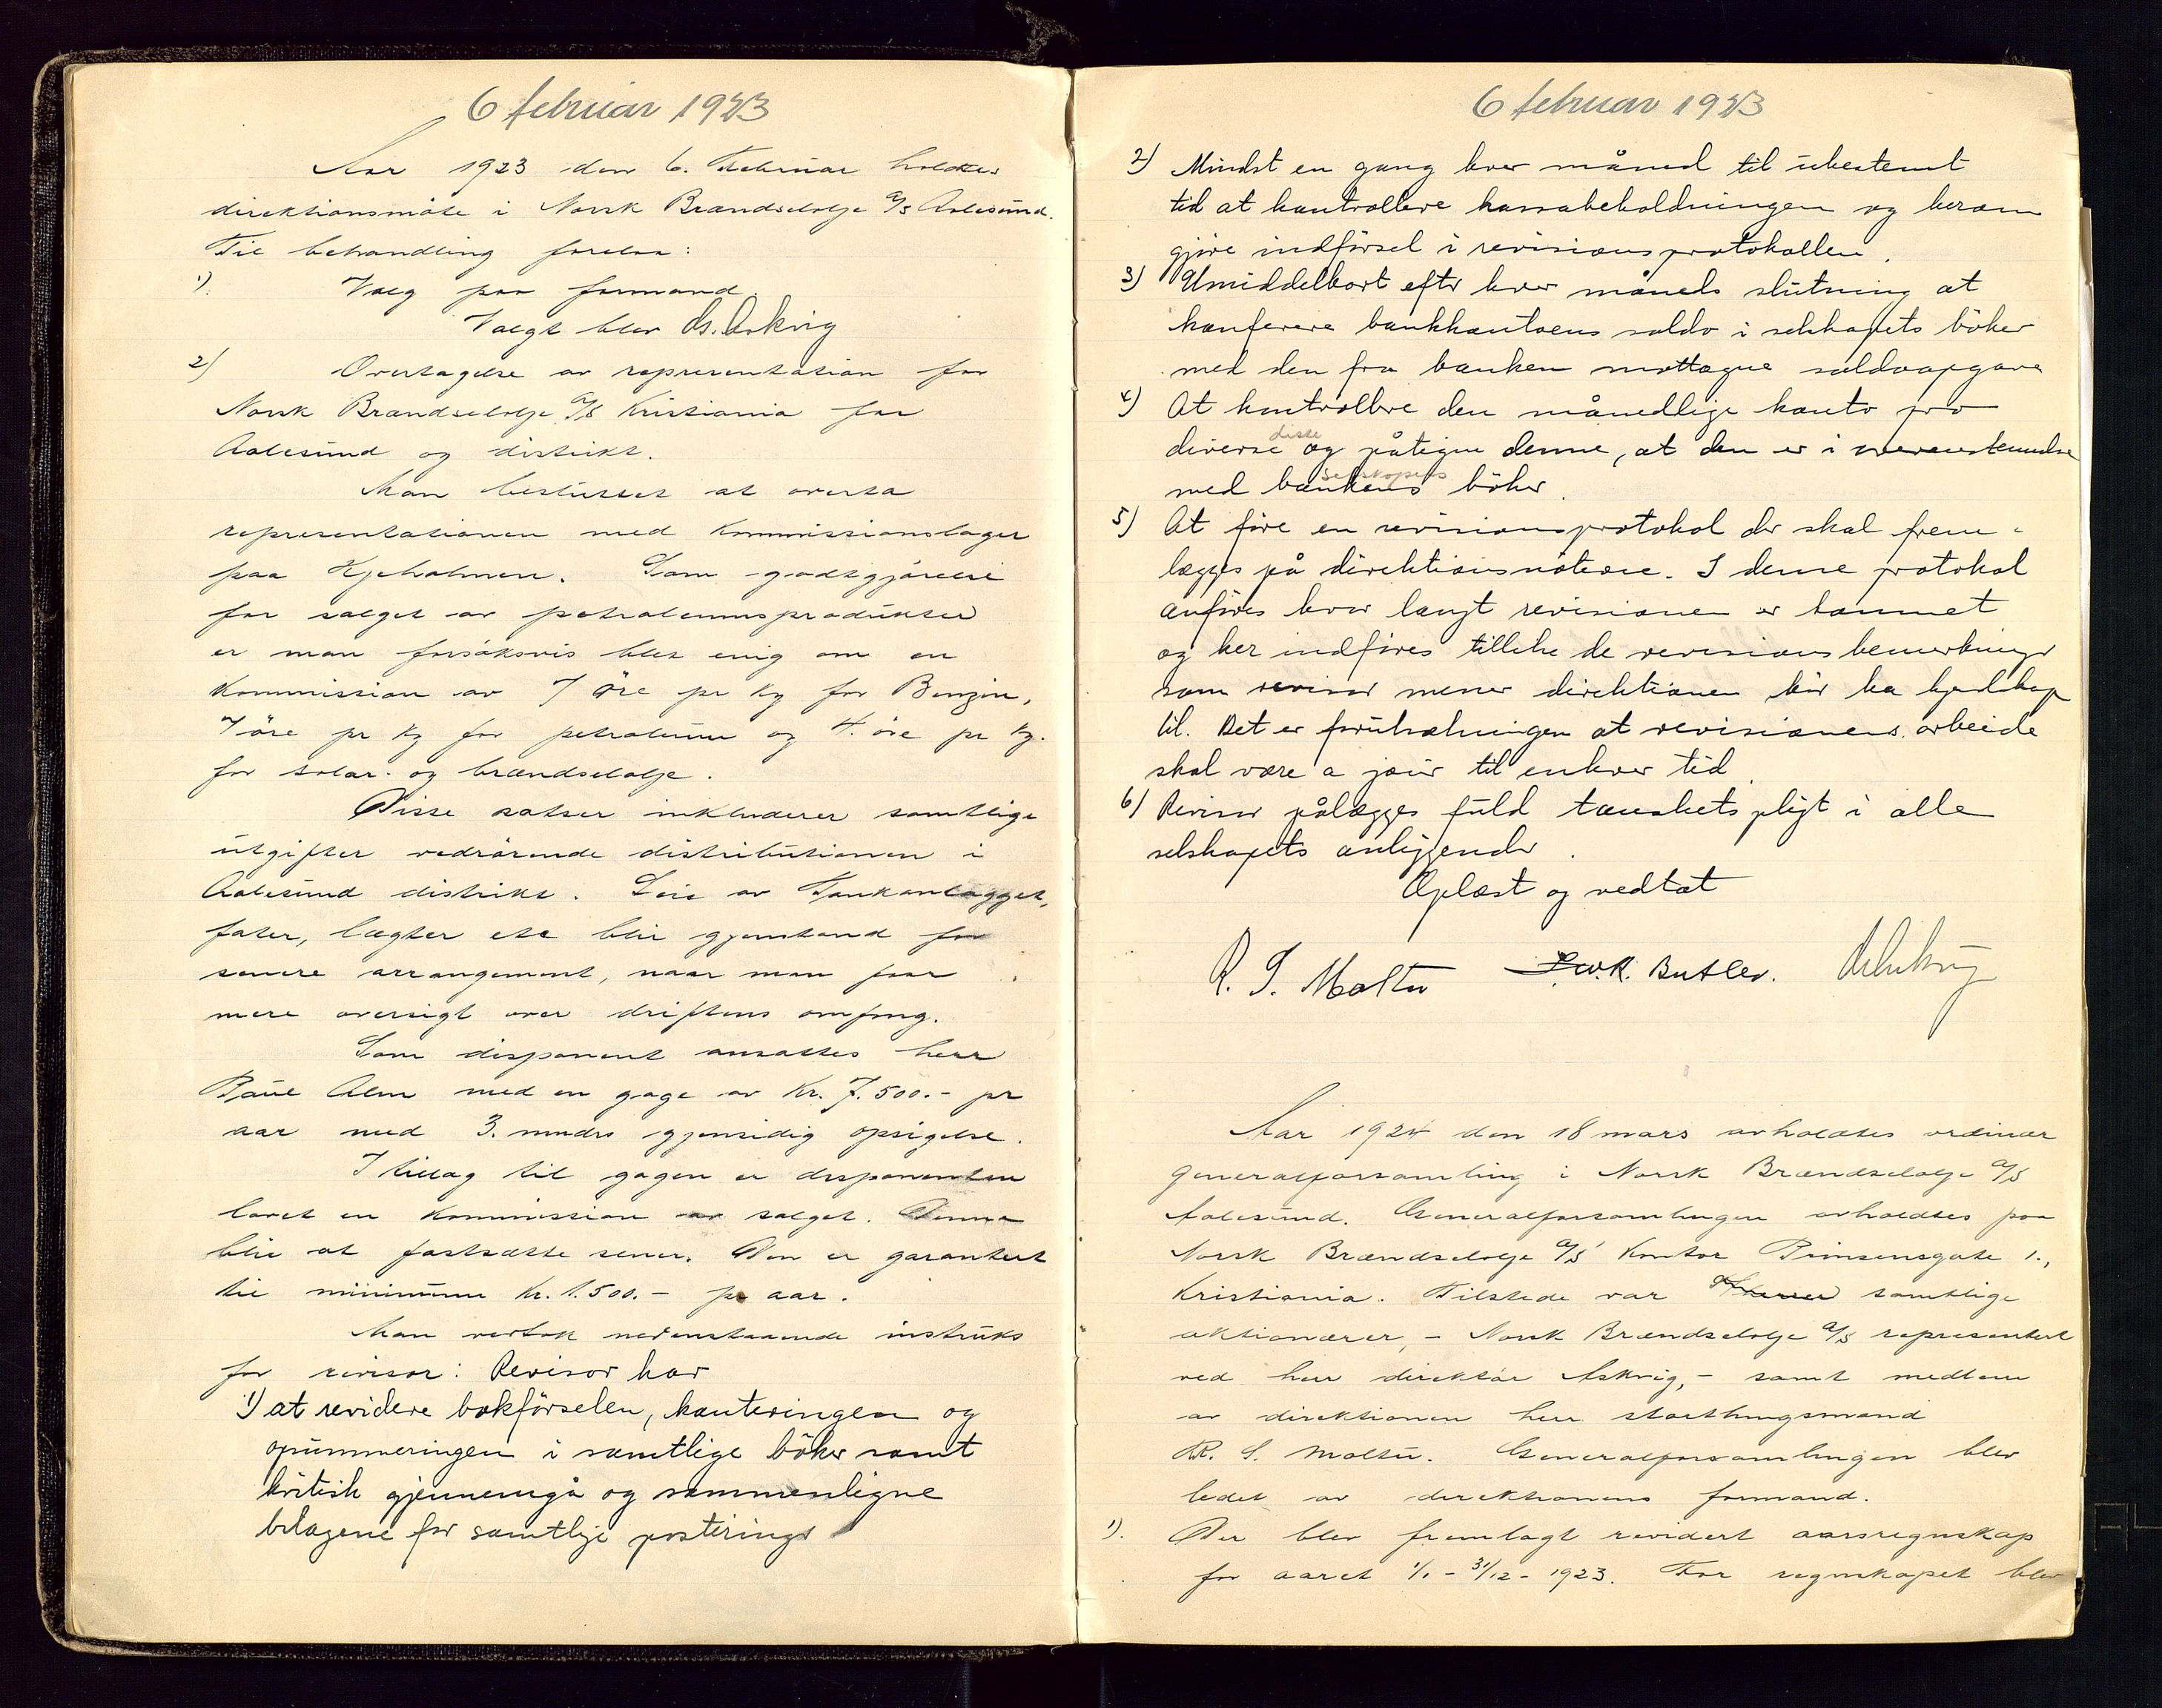 6 februar 1923
Aar 1923 den 6. Februar holdtes
direktionsmöte i Norsk Brændselolje A/S Aalesund.
Til behandling forelaa:
1). Valg paa formand.
Valgt blev Askvig
2) Overtagelse av representation for
Norsk Brændselolje A/S Kristiania for
Aalesund og distrikt.
Man besluttet at overta
representationen med Kommissionslager
paa Kjeholmen. Som godtgjörelse
for salget av petroleumsprodukter
er man forsöksvis blet enig om en
Kommission av 7 öre pr kg for Benzin,
7 öre pr kg for petroleum og 4. öre pr kg.
for solar- og brændselolje.
Disse satser inkluderer samtlige
utgifter vedrörende distributionen i
Aalesund distrikt. Leie av Tankanlægget,
fater, lægter etc blir gjenstand for
senere arrangement, naar man faar
mere oversigt over driftens omfang.
Som disponent ansattes herr
Paul Alm med en gage av Kr. 7.500.- pr
aar med 3. mndrs gjensidig opsigelse.
I tillæg til gagen er disponenten
lovet en Kommission av salget. Denne
blir at fastsætte senere. Den er garantert
til minimum Kr. 1.500.- pr aar.
Man vedtok nedenstaaende instruks
for revisor: Revisor har
1) at revidere bokförselen, konteringen og
opsummeringen i samtlige böker samt
kritisk gjennemgå og sammenligne
bilagene for samtlige posteringer
6 februar 1923
2) Mindst en gang hver måned til ubestemt
tid at kontrollere kassabeholdningen og herom
gjöre indförsel i revisionsprotokollen.
3) Umiddelbart efter hver måneds slutning at
konferere bankkontoens saldo i selskapets böker
med den fra banken mottagne saldoopgave
4) At kontrollere den månedlige konto pro
liste
diverse og påtegne denne, at den er i overenstemmelse
selskapets
med bankens böker.
5) At före en revisionsprotokol der skal frem-
lægges på direktionsmöterne. I denne protokol
anföres hvor langt revisionen er kommet
og her indföres tillike de revisionsbemerkninger
som revisor mener direktionen bör ha kjendskap
til. Det er forutsætningen at revisionens arbeide
skal være a jour til enhver tid.
6) Revisor pålægges fuld taushetspligt i alle
selskapets anliggender.
Oplæst og vedtat
R. S. Moltu W.K. Butler. Askvig
Aar 1924 den 18 mars avholdtes ordinær
generalforsamling i Norsk Brændselolje A/S
Aalesund. Generalforsamlingen avholdtes paa
Norsk Brændselolje A/S Kontor Prinsensgate 1.,
Kristiania. Tilstede var samtlige
aktionærer, - Norsk Brændselolje A/S representert
ved herr direktör Askvig, - samt medlem
av direktionen herr stortingsmand
R. S. Moltu. Generalforsamlingen blev
ledet av direktionens formand.
1). Der blev fremlagt revidert aarsregnskap
for aaret 1/1 - 31/12 - 1923. For regnskapet blev